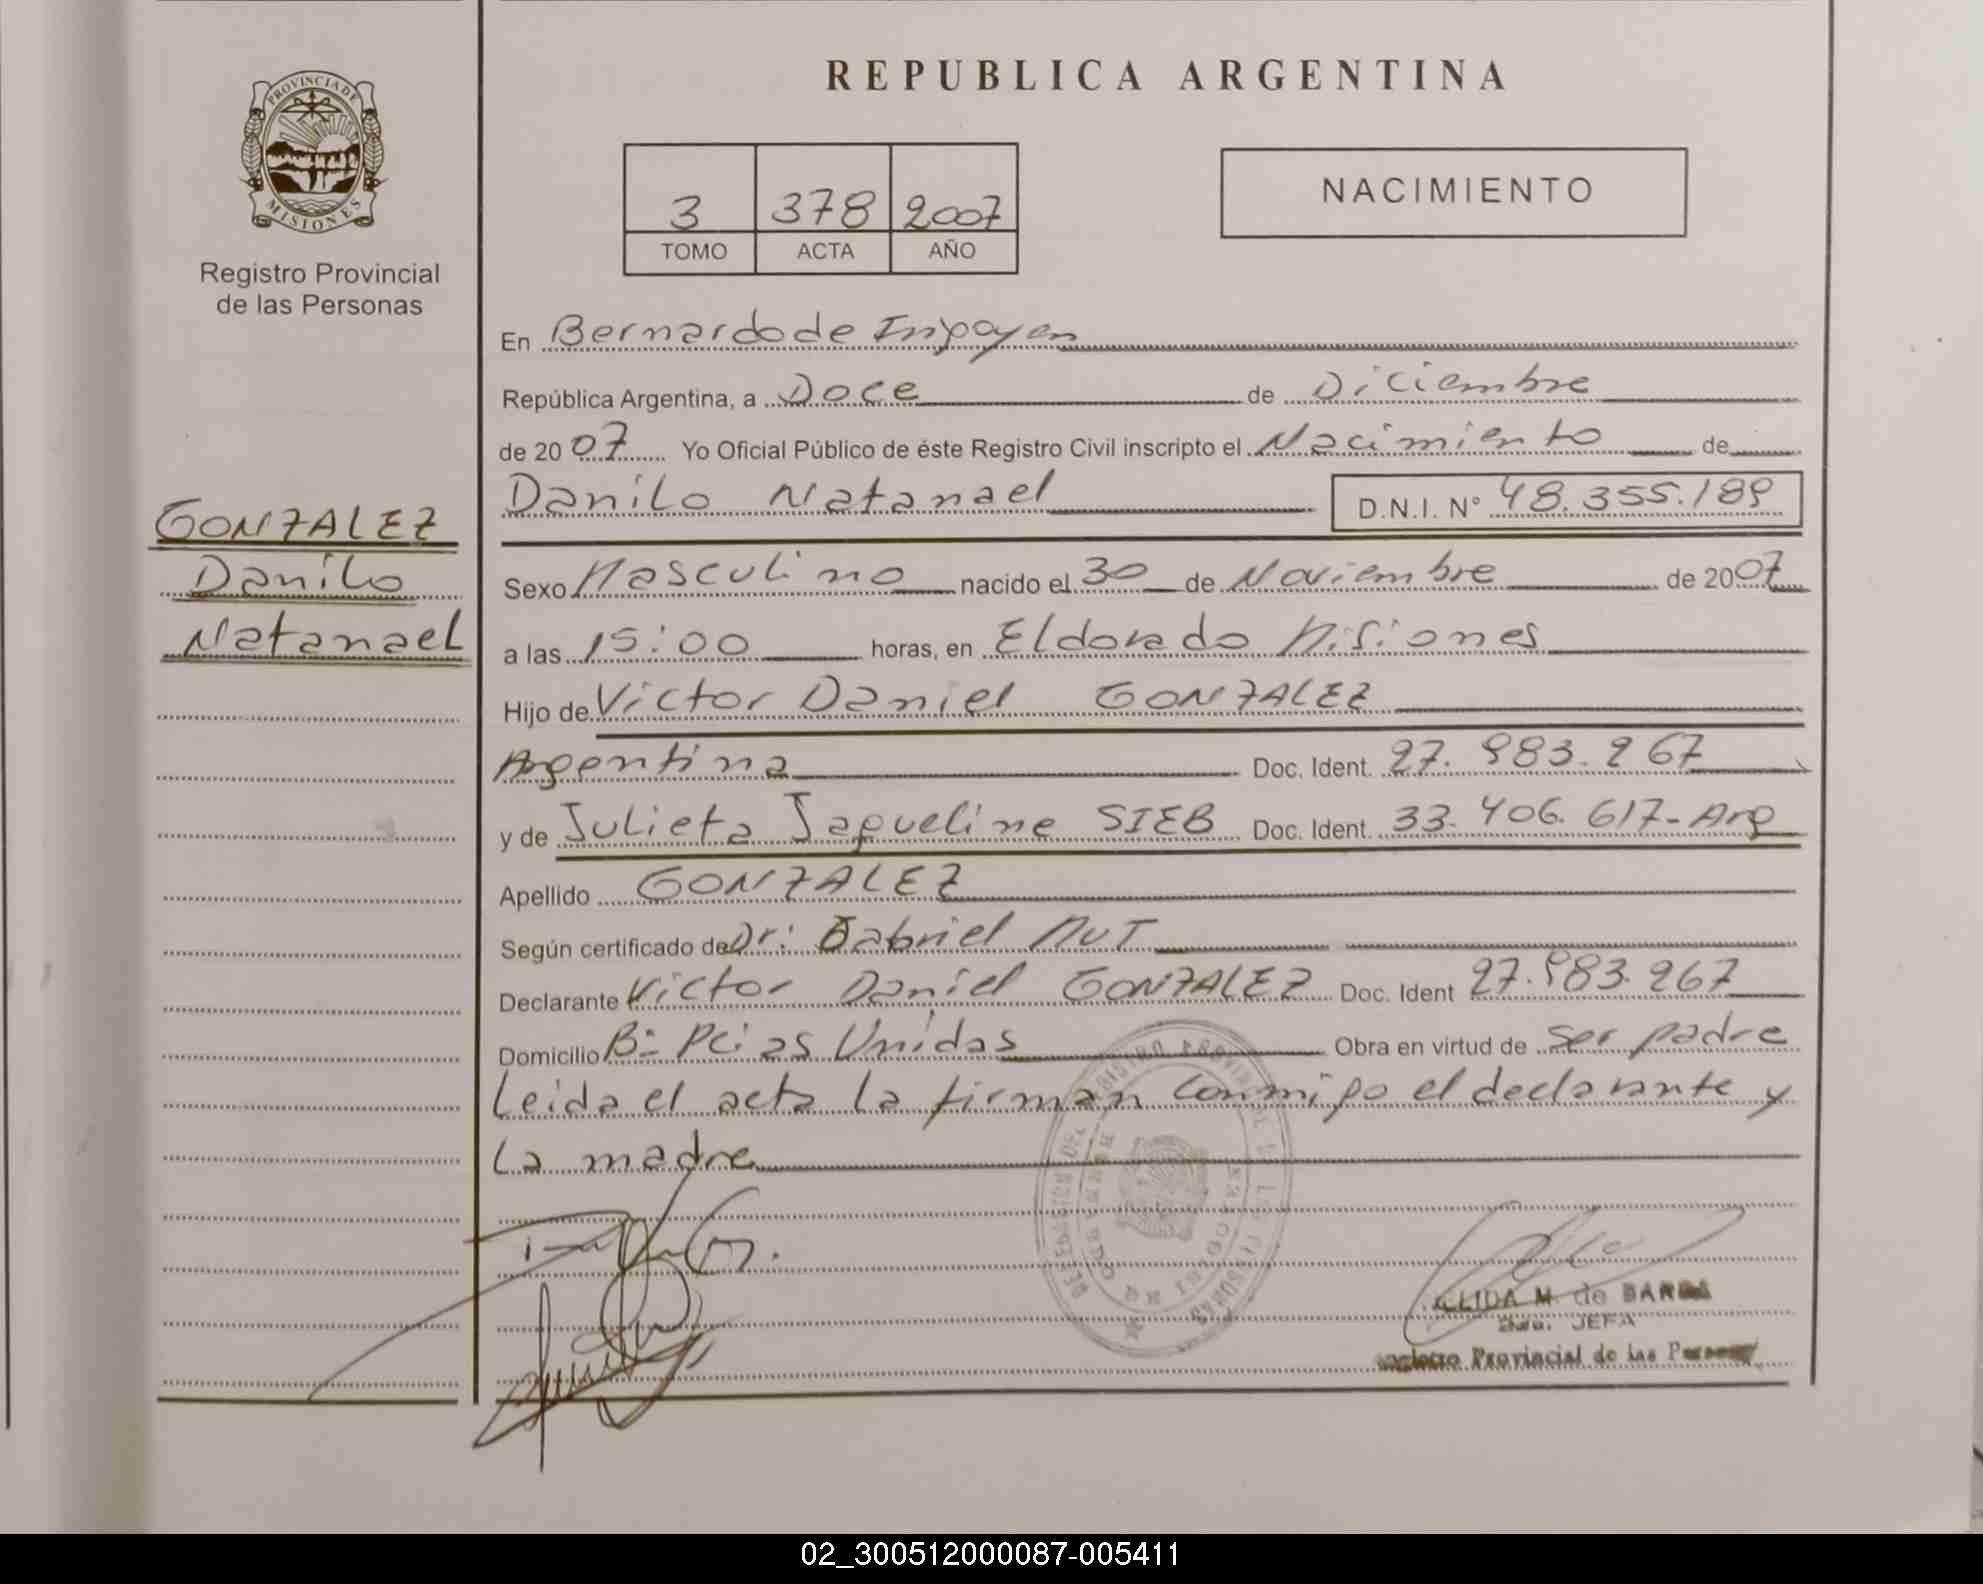 PROVINCIA DE
MISIONES
Registro Provincial
de las Personas
GONZALEZ
Danilo
Natanael
REPUBLICA ARGENTINA
3 378 2007
TOMO ACTA AÑO
NACIMIENTO
En Bernardo de Irigoyen
República Argentina, a Doce de Diciembre
de 2007 Yo Oficial Público de éste Registro Civil inscripto el Nacimiento de
Danilo Natanael D.N.I. N° 48.355.189
Sexo Masculino nacido el 30 de Noviembre de 2007
a las 15:00 horas, en Eldorado Misiones
Hijo de Victor Daniel GONZALEZ
Argentina Doc. Ident. 27.983.267
y de Julieta Jaqueline SIEB Doc. Ident. 33.406.617- Arg
Apellido GONZALEZ
Según certificado de Dr: Gabriel
Declarante Victor Daniel GONZALEZ Doc. Ident 27.983.267
Domicilio B= Pcias Unidas Obra en virtud de ser padre
Leida el acta la firman conmigo el declarante y
la madre
M. de
JEFA
Provincial de las
02_300512000087-005411